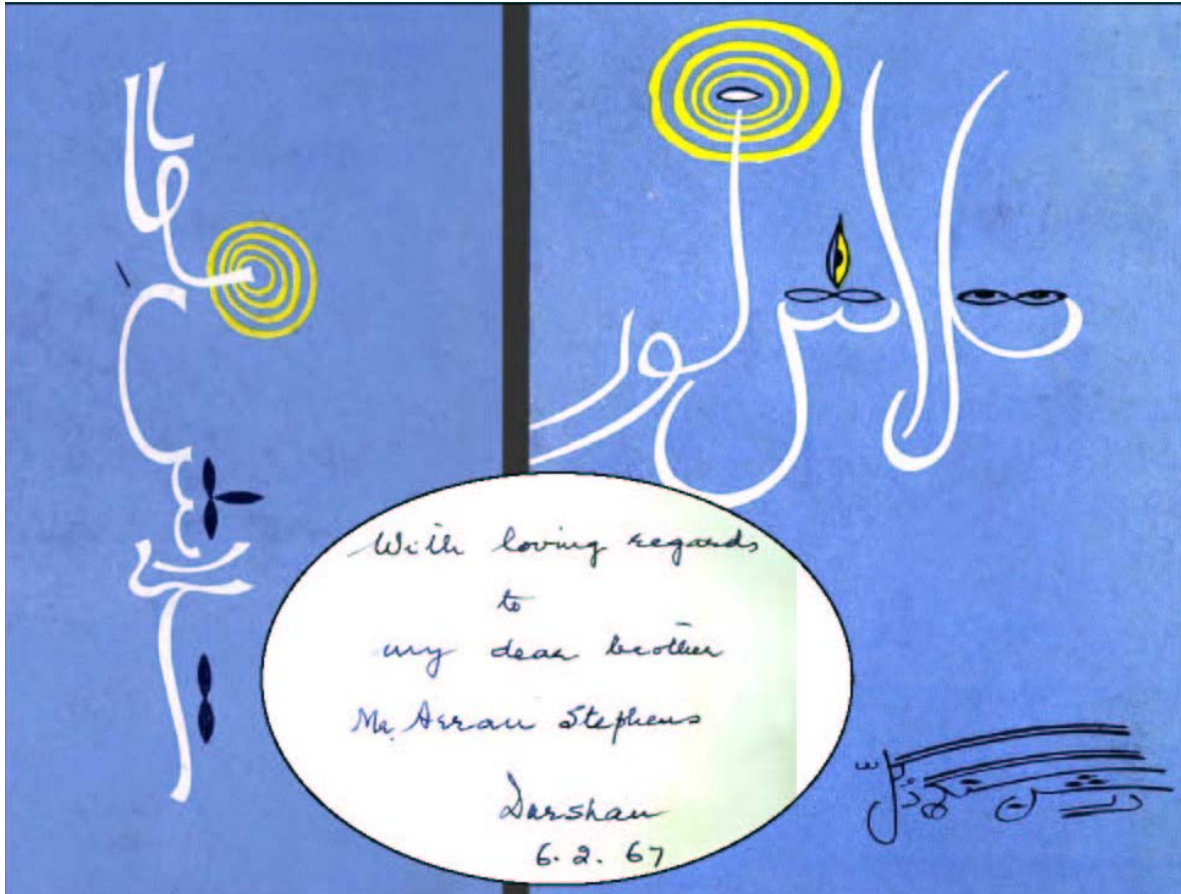 تلاش نور
With loving regards
to
my dear brother
Mr. Arran Stephens
Darshan
6.2.67
درشن سنگھ دُگّل